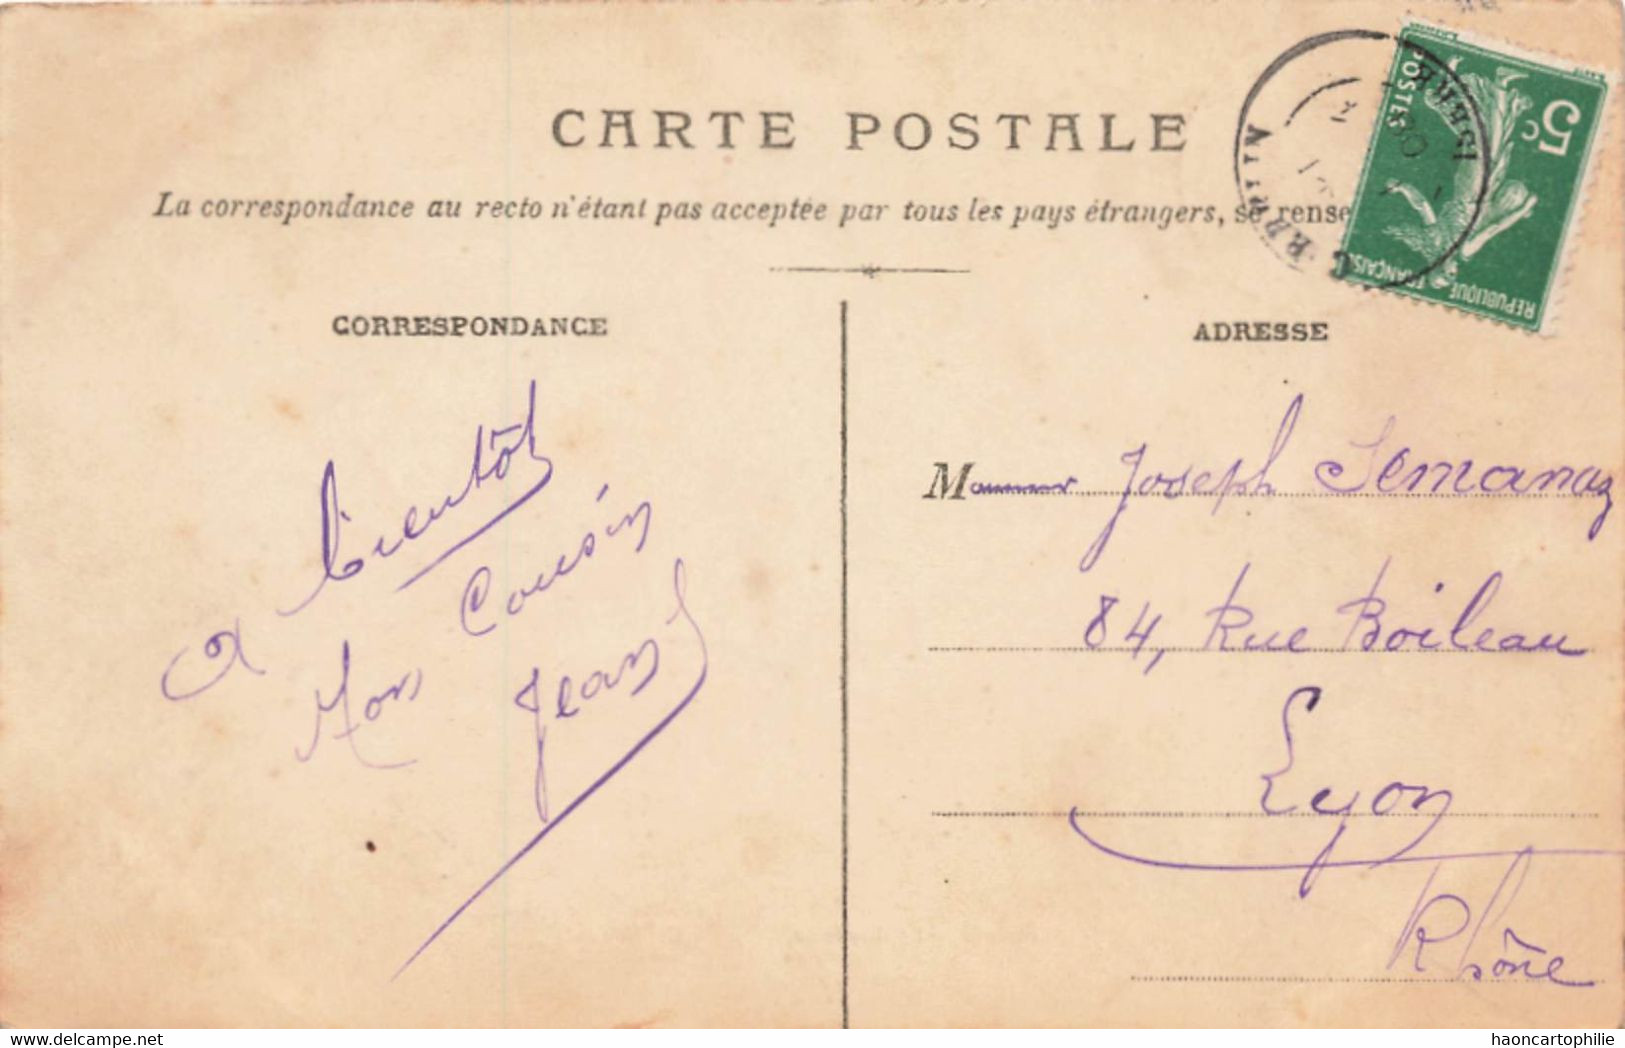 CARTE POSTALE
La correspondance au recto n'étant pas acceptée par tous les pays étrangers, se rense
CORRESPONDANCE
A bientôt
Mon Cousin
Jean
ADRESSE
Monsieur Joseph Semanaz
84, Rue Boileau
Lyon
Rhône
5c
POSTES
REPUBLIQUE FRANÇAISE
www.delcampe.net
haoncartophilie